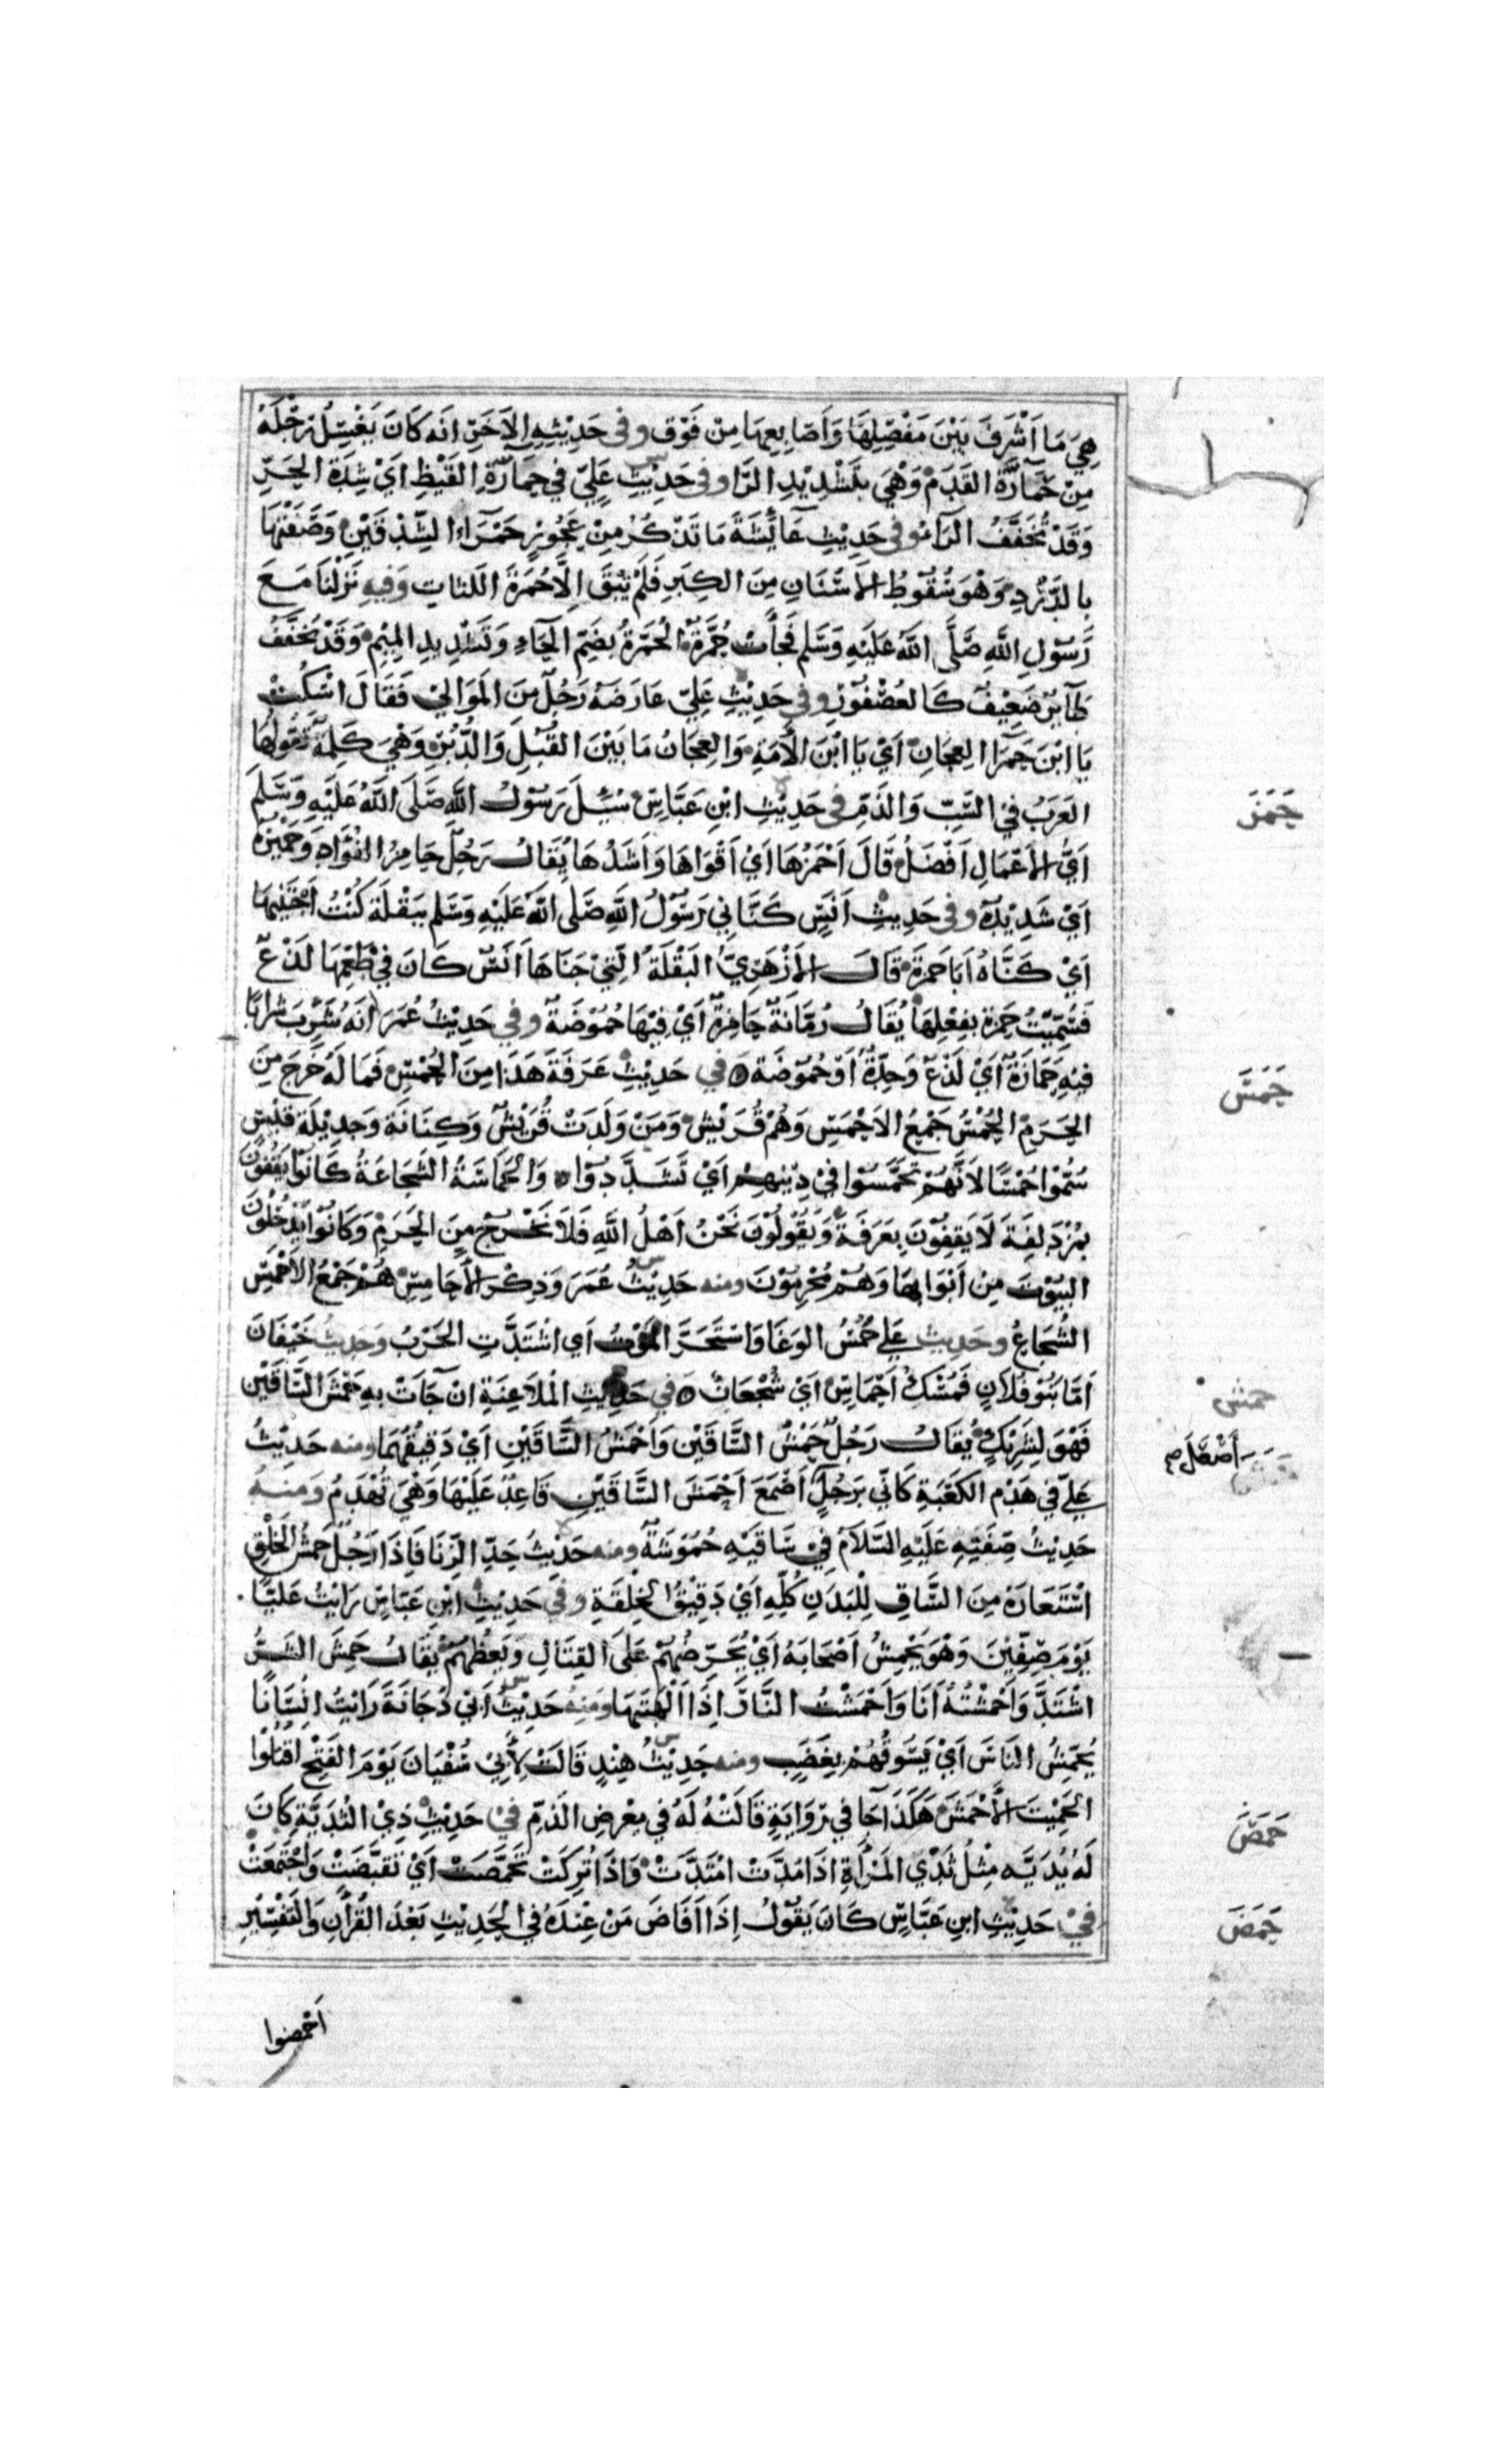 هِيَ مَا اَشْرَفَ بَيْنَ مَفْصِلِهَا وَاَصَابِعِهَا مِنْ فَوْق وفى حَدِيْثِهِ الاَخَرِ انَه كَانَ يَغْسِلُ رِجْلَهُ
مِنْ حَمَارَّةِ القَدَمِ وَهْيَ بِتَشْدِيْدِ الرَّا وفى حَدِيْثِ عَلِيّ في حِمَارّةِ القَيْظِ اَيْ شِدَّةِ الحَرِّ
وَقَدْ تُخَفَّفُ الرَآءُ وفى حَدِيْثِ عَآئِشَةَ مَا تَذْكُرُ مِنْ عَجُوْزٍ حَمْرَاءِ الشِّدْقَيْنِ وَصَفَتْهَا
بالدَّرَدِ وَهْوَ سُقُوْطُ الاَسْنَانِ مِنَ الكِبَرِ فَلَمْ يَبْقَ اِلَّا حُمْرَةُ اللثَاتِ وَفِيهِ نَزَلْنَا مَعَ
رَسُوْلِ اللَّهِ صَلَّى اللَّهُ عَلَيْهِ وَسَلم فَجَاءت حُمَّرَةٌ الحُمَّرَةُ بِضَمِّ الحَاءِ وَتَشْدِيدِ المِيْمِ وَقَدْ تُخَفَّفُ
طَآئِرٌ صَغِيْفٌ كَالعُصْفُوْرِ وفي حَدِيْثِ عَلِيّ عَارَضَهُ رَجُلٌ مِنَ المَوَالِيْ فَقَالَ اسْكُتْ
يَا ابْنَ حَمرَا العِجَانِ اَيْ يَا ابْنَ الاَمَةِ وَالعِجَانُ مَا بَيْنَ القُبُلِ وَالدُّبُرِ وَهْيَ كَلِمَةٌ تَقُولُهَا
العَرَبُ فِي السَّبِّ وَالذَمِّ فى حَدِيْثِ ابْنِ عَبَّاسٍ سُئِلَ رَسُوْلُ اللَّهِ صَلَّى اللَّهُ عَلَيْهِ وَسَلَّمَ
حَمَزَ
اَيُّ الاَعْمَالِ اَفْضَلُ قَالَ اَحْمَزُهَا اَيْ اَقْوَاهَا وَاَشَدُهَا يُقَالُ رَجُلٌ حَامِزُ الفُؤَادِ وَحَمِيْزُهُ
اَيْ شَدِيْدُهُ وفى حَدِيْثِ اَنَسٍ كَنَّانِي رَسُوْلُ اللَّهِ صَلَى اللَّهُ عَلَيْهِ وَسَلم بِبَقْلَة كُنْتُ اَجْتَنِيْهَا
اَيْ كَنَّاهُ اَبَا حَمزَةَ قَالَ الاَزْهَرِيُّ البَقْلَةُ الَّتِيْ جَنَاهَا اَنَسٌ كَانَ فِيْ طَعْمِهَا لَذْعٌ
فَسُمِّيَتْ حَمزَة بِفِعْلِهَا يُقَالُ رُمَّانَةٌ حَامِزَةٌ اَيْ فِيْهَا حُمُوْضَةٌ وفي حَدِيْثُ عُمَرَ انَهُ شَرِبَ شَرَابًا
فِيْهِ حَمَازَةٌ اَيْ لَذْعٌ وَحِدَّةٌ اَوْ حُمُوْضَةٌ في حَدِيْثِ عَرَفَةَ هَذَا مِنَ الحُمْسِ فَمَا لَهُ خَرَجَ مِنَ
حَمَسَ
الحَرَمِ الحُمْسُ جَمْعُ الاَحْمَسِ وَهُمْ قُرَيْشٌ وَمَنْ وَلَدَتْ قُرَيْشٌ وَكِنَانَة وَجَدِيْلَة قَيْس
سُمُّوْا حُمْسًا لاَنَّهُمْ تَحَمَّسُوْا فِيْ دِيْنِهِمْ اَيْ تَشَدَّدُوْا وَالحَمَاسَةُ الشَجَاعَةُ كَانُوْا يَقِفُوْنَ
بِمُزْدَلِفَةَ لَا يَقِفُوْنَ بِعَرَفَةَ وَيَقُوْلُوْنَ نَحْنُ اَهْلُ اللَّهِ فَلَا نَخْرُجُ مِنَ الحَرَمِ وَكَانُوْا يَدْخُلُوْنَ
البُيُوْتَ مِنْ اَبْوَابِهَا وَهُمْ مُحْرِمُوْنَ ومنه حَدِيْثُ عُمَرَ وَذِكْر الاَحَامِسِ هُمْ جَمْعُ الاَحْمَسِ
الشُجَاعُ وحَدِيث عَلِي حَمُسُ الوَغَا وَاسْتَحَرَّ المَوْتُ اَي اشْتَدَّتِ الحَرْبُ وَحَدِيثُ خَيْفَانَ
اَمَّا بَنُوْ فُلَانٍ فَمُسُكٌ اَحْمَاسٌ اَيْ شُجْعَانٌ في حَدِيْث المُلَاعَنَةِ انْ جَآتْ بِهِ حَمْشَ السَّاقَيْنِ
حمش
فَهْوَ لِشَرِيْكٍ يُقَالُ رَجُلٌ حَمْشُ السَّاقَيْنِ وَاَحْمَشُ السَّاقَيْنِ اَيْ دَقِيْقُهُمَا ومنه حَدِيْثُ
عَلِيّ في هَدْمِ الكَعْبَةِ كَاَنِّي بَرَجُلٍ اَصْمَعَ اَحْمَشَ السَّاقَيْنِ قَاعِدٌ عَلَيْهَا وَهْيَ تُهْدَمُ وَمنهُ
حَدِيْثُ صِفَتِهِ عَلَيْهِ السَّلَامُ فِيْ سَاقَيْهِ حُمُوْشَةٌ ومنه حَدِيْثُ حَدِّ الزِّنَا فَاِذَا رَجُلٌ حَمْشُ الخَلْقِ
اسْتَعَارَهُ مِنَ السَّاقِ لِلْبَدَنِ كُلِّهِ اَيْ دَقِيْقُ الخِلْقَةِ وفي حَدِيْثِ ابْنِ عَبَّاسٍ رَاَيْتُ عَلِيًّا
يَوْمَ صِفِّيْنَ وَهْوَ يُحْمِشُ اَصْحَابَهُ اَيْ يُحَرِّضُهُمْ عَلَى القِتَالِ وَيُغْضِبُهُمْ يُقَالُ حَمِشَ الشَرُّ
اشْتَدَّ وَاَحْمَشْتُهُ اَنَا وَاَحْمَشْتُ النَّارَ اِذَا اَلْهَبْتَهَا وَمنهُ حَدِيْثُ اَبِيْ دُجَانَةَ رَاَيْتُ اِنْسَانًا
يُحَمِّشُ النَاسَ اَيْ يَسُوْقُهُمْ بِغَضَبٍ ومنه حَدِيْثُ هِنْدٍ قَالَتْ لِاَبِيْ سُفْيَانَ يَوْمَ الفَتْحِ اقْتُلُوْا
الحَمِيْتَ الاَحْمَشَ هَكَذَا جَا في رِوَايَةٍ قَالَتْهُ لَهُ في مِعْرِضِ الذَمِّ فِيْ حَدِيْثِ ذِيْ الثُدَيَّةِ كَانَ
حَمَصَ
لَهُ ثُدَيَّه مِثْلُ ثَدْي المَرْاَةِ اذَا مُدَّتْ امْتَدَّتْ وَاذَا تُرِكَتْ تَحَمَّصَتْ اَيْ تَقَبَّضَتْ وَاجْتَمَعَتْ
فِيْ حَدِيْثِ ابنِ عَبَّاسٍ كَانَ يَقُوْلُ اِذَا اَفَاضَ مَنْ عِنْدَهُ فِي الحَدِيْثِ بَعْدَ القُرْاَنِ وَالتَفْسِيْرِ
حَمَضَ
اَحْمضوا